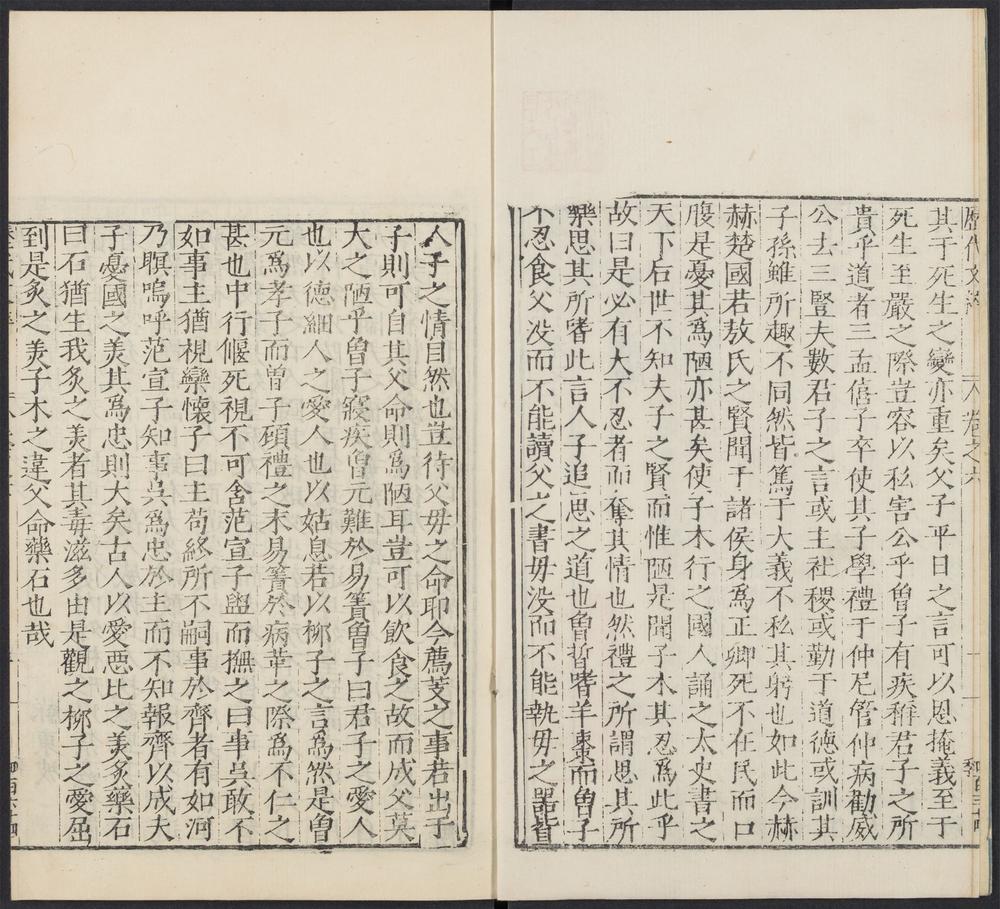 歷代文
卷之六
其于死生之變亦重矣父子平日之言可以恩掩義至于
死生至嚴之際豈容以私害公乎曾子有疾稱君子之所
貴乎道者三孟僖子卒使其子學禮于仲尼管仲病勸威
公去三豎夫數君子之言或主社稷或勤于道德或訓其
子孫雖所趣不同然皆篤于大義不私其躬也如此今赫
赫楚國若敖氏之賢聞于諸侯身爲正卿死不在民而口
腹是憂其爲陋亦甚矣使子木行之國人誦之太史書之
天下后世不知夫子之賢而惟陋是聞子木其忍爲此乎
故曰是必有大不忍者而奪其情也然禮之所謂思其所
樂思其所嗜此言人子追思之道也曾晳嗜羊棗而曾子
不忍食父没而不能讀父之書母没而不能執母之器皆
人子之情自然也豈待父母之命耶今薦芰之事若出子
子則可自其父命則爲陋耳豈可以飲食之故而成父莫
大之陋乎曾子寢疾曾元難於易簀曾子曰君子之愛人
也以德細人之愛人也以姑息若以柳子之言爲然是曾
元爲孝子而曾子碩禮之末易簀於病革之際爲不仁之
甚也中行偃死視不可含范宣子盥而撫之曰事吳敢不
如事主猶視欒懷子曰主苟終所不嗣事於齊者有如河
乃瞑嗚呼范宣子知事吳爲忠於主而不知報齊以成夫
子憂國之美其爲忠則大矣古人以愛惡比之美疢藥石
曰石猶生我疢之美者其毒滋多由是觀之柳子之愛屈
到是疢之美子木之違父命藥石也哉